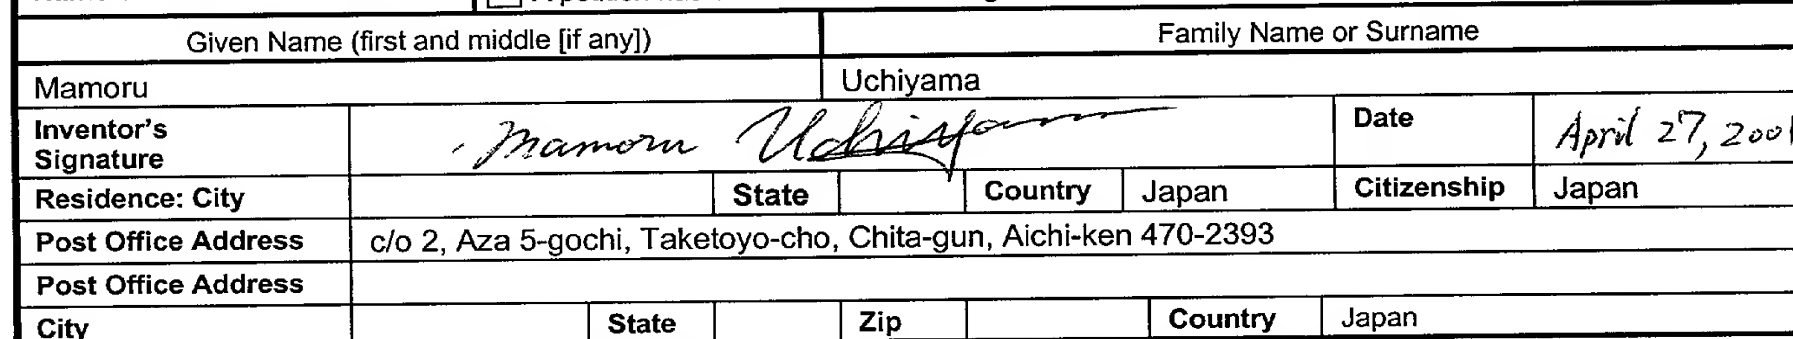 Given Name (first and middle [if any]) Family Name or Surname
Mamoru Uchiyama
Inventor's Signature Mamoru Uchiyama Date April 27, 2001
Residence: City State Country Japan Citizenship Japan
Post Office Address c/o 2, Aza 5-gochi, Taketoyo-cho, Chita-gun, Aichi-ken 470-2393
Post Office Address
City State Zip Country Japan